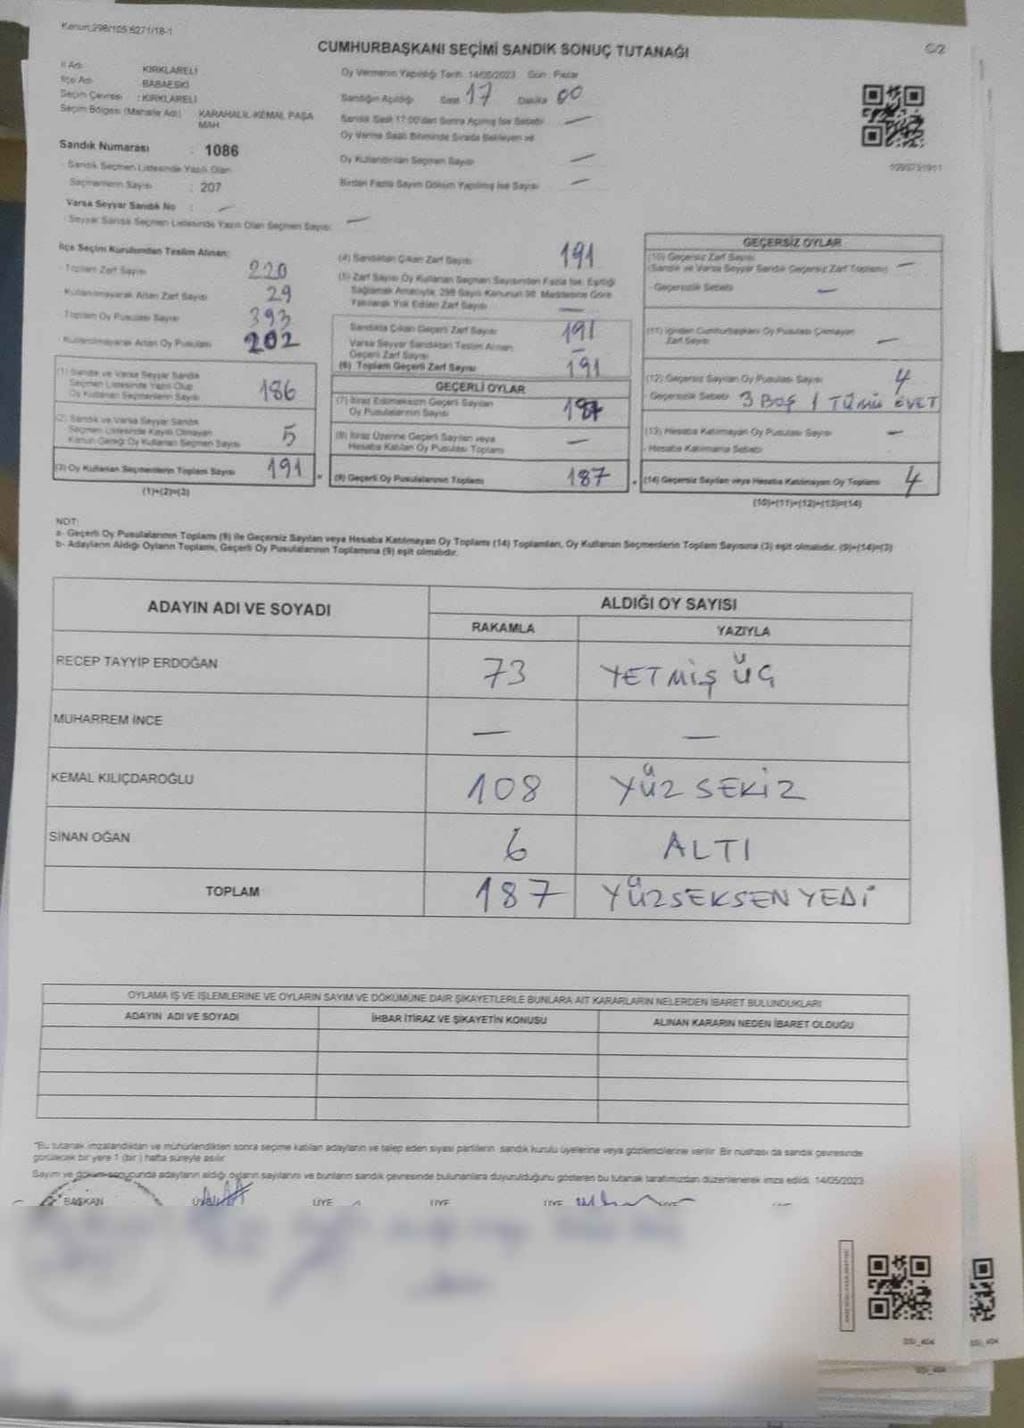 Kanun:298/105,6271/18-1
CUMHURBAŞKANI SEÇİMİ SANDIK SONUÇ TUTANAĞI
C/2
İl Adı KIRKLARELİ
İlçe Adı BABAESKİ
Seçim Çevresi : KIRKLARELİ
Seçim Bölgesi (Mahalle Adı) KARAHALİL-KEMAL PAŞA MAH
Sandık Numarası : 1086
Sandık Seçmen Listesinde Yazılı Olan
Seçmenlerin Sayısı : 207
Varsa Seyyar Sandık No : —
Seyyar Sandık Seçmen Listesinde Yazılı Olan Seçmen Sayısı: —
Oy Vermenin Yapıldığı Tarih: 14/05/2023 Gün: Pazar
Sandığın Açıldığı Saat 17 Dakika 00
Sandık Saat 17:00'dan Sonra Açılmış İse Sebebi —
Oy Verme Saati Bitiminde Sırada Bekleyen ve
Oy Kullandırılan Seçmen Sayısı —
Birden Fazla Sayım Döküm Yapılmış İse Sayısı —
İlçe Seçim Kurulundan Teslim Alınan:
Toplam Zarf Sayısı 220
Kullanılmayarak Artan Zarf Sayısı 29
Toplam Oy Pusulası Sayısı 393
Kullanılmayarak Artan Oy Pusulası 202
(1) Sandık ve Varsa Seyyar Sandık
Seçmen Listesinde Yazılı Olup
Oy Kullanan Seçmenlerin Sayısı 186
(2) Sandık ve Varsa Seyyar Sandık
Seçmen Listesinde Kayıtlı Olmayan
Kanun Gereği Oy Kullanan Seçmen Sayısı 5
(3) Oy Kullanan Seçmenlerin Toplam Sayısı 191
(1)+(2)=(3)
(4) Sandıktan Çıkan Zarf Sayısı 191
(5) Zarf Sayısı Oy Kullanan Seçmen Sayısından Fazla İse, Eşitliği
Sağlamak Amacıyla, 298 Sayılı Kanunun 98. Maddesine Göre
Yakılarak Yok Edilen Zarf Sayısı —
Sandıkta Çıkan Geçerli Zarf Sayısı 191
Varsa Seyyar Sandıktan Teslim Alınan
Geçerli Zarf Sayısı —
(6) Toplam Geçerli Zarf Sayısı 191
GEÇERLİ OYLAR
(7) İtiraz Edilmeksizin Geçerli Sayılan
Oy Pusulalarının Sayısı 187
(8) İtiraz Üzerine Geçerli Sayılan veya
Hesaba Katılan Oy Pusulası Toplamı —
(9) Geçerli Oy Pusulalarının Toplamı 187
GEÇERSİZ OYLAR
(10) Geçersiz Zarf Sayısı
(Sandık ve Varsa Seyyar Sandık Geçersiz Zarf Toplamı) —
Geçersizlik Sebebi —
(11) İçinden Cumhurbaşkanı Oy Pusulası Çıkmayan
Zarf Sayısı —
(12) Geçersiz Sayılan Oy Pusulası Sayısı 4
Geçersizlik Sebebi 3 BOŞ 1 TÜMÜ EVET
(13) Hesaba Katılmayan Oy Pusulası Sayısı —
Hesaba Katılmama Sebebi
(14) Geçersiz Sayılan veya Hesaba Katılmayan Oy Toplamı 4
(10)+(11)+(12)+(13)=(14)
NOT:
a- Geçerli Oy Pusulalarının Toplamı (9) ile Geçersiz Sayılan veya Hesaba Katılmayan Oy Toplamı (14) Toplamları, Oy Kullanan Seçmenlerin Toplam Sayısına (3) eşit olmalıdır. (9)+(14)=(3)
b- Adayların Aldığı Oyların Toplamı, Geçerli Oy Pusulalarının Toplamına (9) eşit olmalıdır.
ADAYIN ADI VE SOYADI ALDIĞI OY SAYISI
RAKAMLA YAZIYLA
RECEP TAYYİP ERDOĞAN 73 YETMİŞ ÜÇ
MUHARREM İNCE — —
KEMAL KILIÇDAROĞLU 108 YÜZ SEKİZ
SİNAN OĞAN 6 ALTI
TOPLAM 187 YÜZSEKSEN YEDİ
OYLAMA İŞ VE İŞLEMLERİNE VE OYLARIN SAYIM VE DÖKÜMÜNE DAİR ŞİKAYETLERLE BUNLARA AİT KARARLARIN NELERDEN İBARET BULUNDUKLARI
ADAYIN ADI VE SOYADI İHBAR İTİRAZ VE ŞİKAYETİN KONUSU ALINAN KARARIN NEDEN İBARET OLDUĞU
"Bu tutanak imzalandıktan ve mühürlendikten sonra seçime katılan adayların ve talep eden siyasi partilerin sandık kurulu üyelerine veya gözlemcilerine verilir. Bir nüshası da sandık çevresinde
görülecek bir yere 1 (bir) hafta süreyle asılır.
Sayım ve döküm sonucunda adayların aldığı oyların sayılarını ve bunların sandık çevresinde bulunanlara duyurulduğunu gösteren bu tutanak tarafımızdan düzenlenerek imza edildi. 14/05/2023
BAŞKAN ÜYE ÜYE ÜYE ÜYE